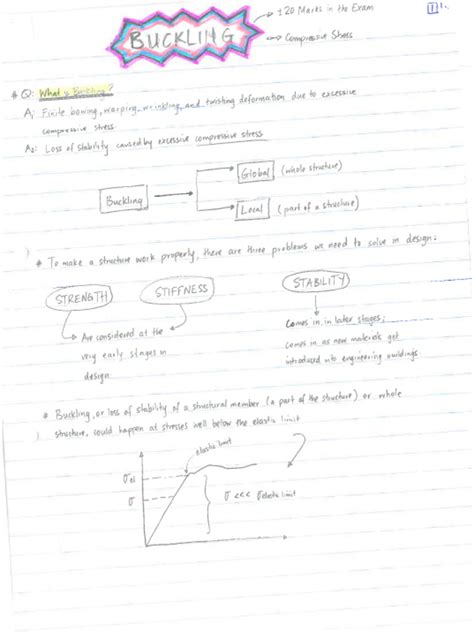 BUCKLING
→ ±20 Marks in the Exam
→ Compressive Stress
1
* Q: What is Buckling?
A: Finite bowing, warping, wrinkling, and twisting deformation due to excessive
compressive stress.
A2: Loss of stability caused by excessive compressive stress
Buckling
Global (whole structure)
Local (part of a structure)
* To make a structure work properly, there are three problems we need to solve in design:
STRENGTH
STIFFNESS
STABILITY
Are considered at the
very early stages in
design
Comes in in later stages;
comes in as new materials get
introduced into engineering
* Buckling, or loss of stability of a structural member (a part of the structure) or whole
structure, could happen at stresses well below the elastic limit
elastic limit
σel
σ
σ <<< σelastic limit